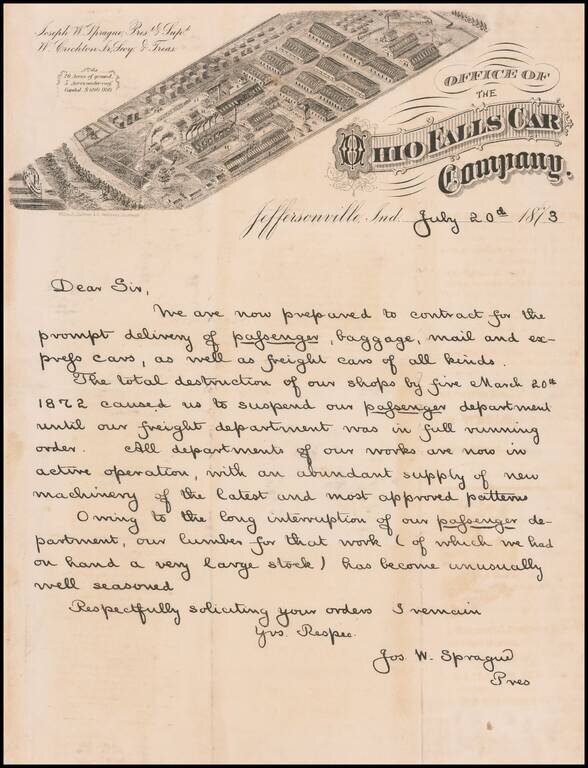 Joseph W. Sprague, Pres. & Supt.
W. Crichton Jr. Secy. & Treas.
of ground
Capital $
OFFICE OF
THE
OHIO FALLS CAR
Company.
Jeffersonville, Ind. July 20th 1873
Dear Sir,
We are now prepared to contract for the
prompt delivery of passenger, baggage, mail and ex-
press cars, as well as freight cars of all kinds.
The total destruction of our shops by fire March 20th
1872 caused us to suspend our passenger department
until our freight department was in full running
order. All departments of our works are now in
active operation, with an abundant supply of new
machinery of the latest and most approved patterns
Owing to the long interruption of our passenger de-
partment, our lumber for that work (of which we had
on hand a very large stock) has become unusually
well seasoned
Respectfully soliciting your orders I remain
Yrs. Respec.
Jos. W. Sprague
Pres